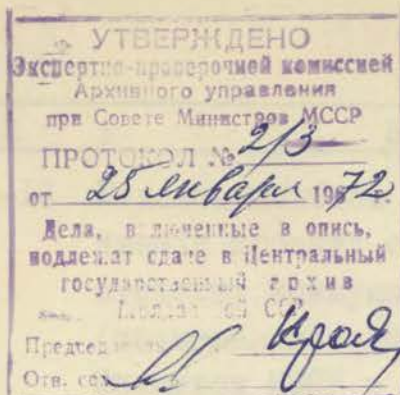 УТВЕРЖДЕНО
Экспертно-проверочной комиссией
Архивного управления
при Совете Министров МССР
ПРОТОКОЛ № 2/3
от 25 января 1972
Дела, включенные в опись,
подлежат сдаче в Центральный
государственный архив
ССР
Отв.